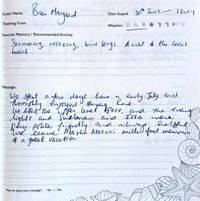 Guest Name: Bren Maynard
Date Stayed: 30th June - 3 July
Traveling From:
Weather:
Favorite Memory / Recommended Activity:
Swimming, relaxing, bird songs A visit to the local
beach
Message:
We spent a few days here in early July and
thoroughly enjoyed staying here.
We liked the upper level space and the living
lights and and Issa were
very polite friendly and always helpful
We leave with fond memories
of a great vacation
May we share your message? Yes / No